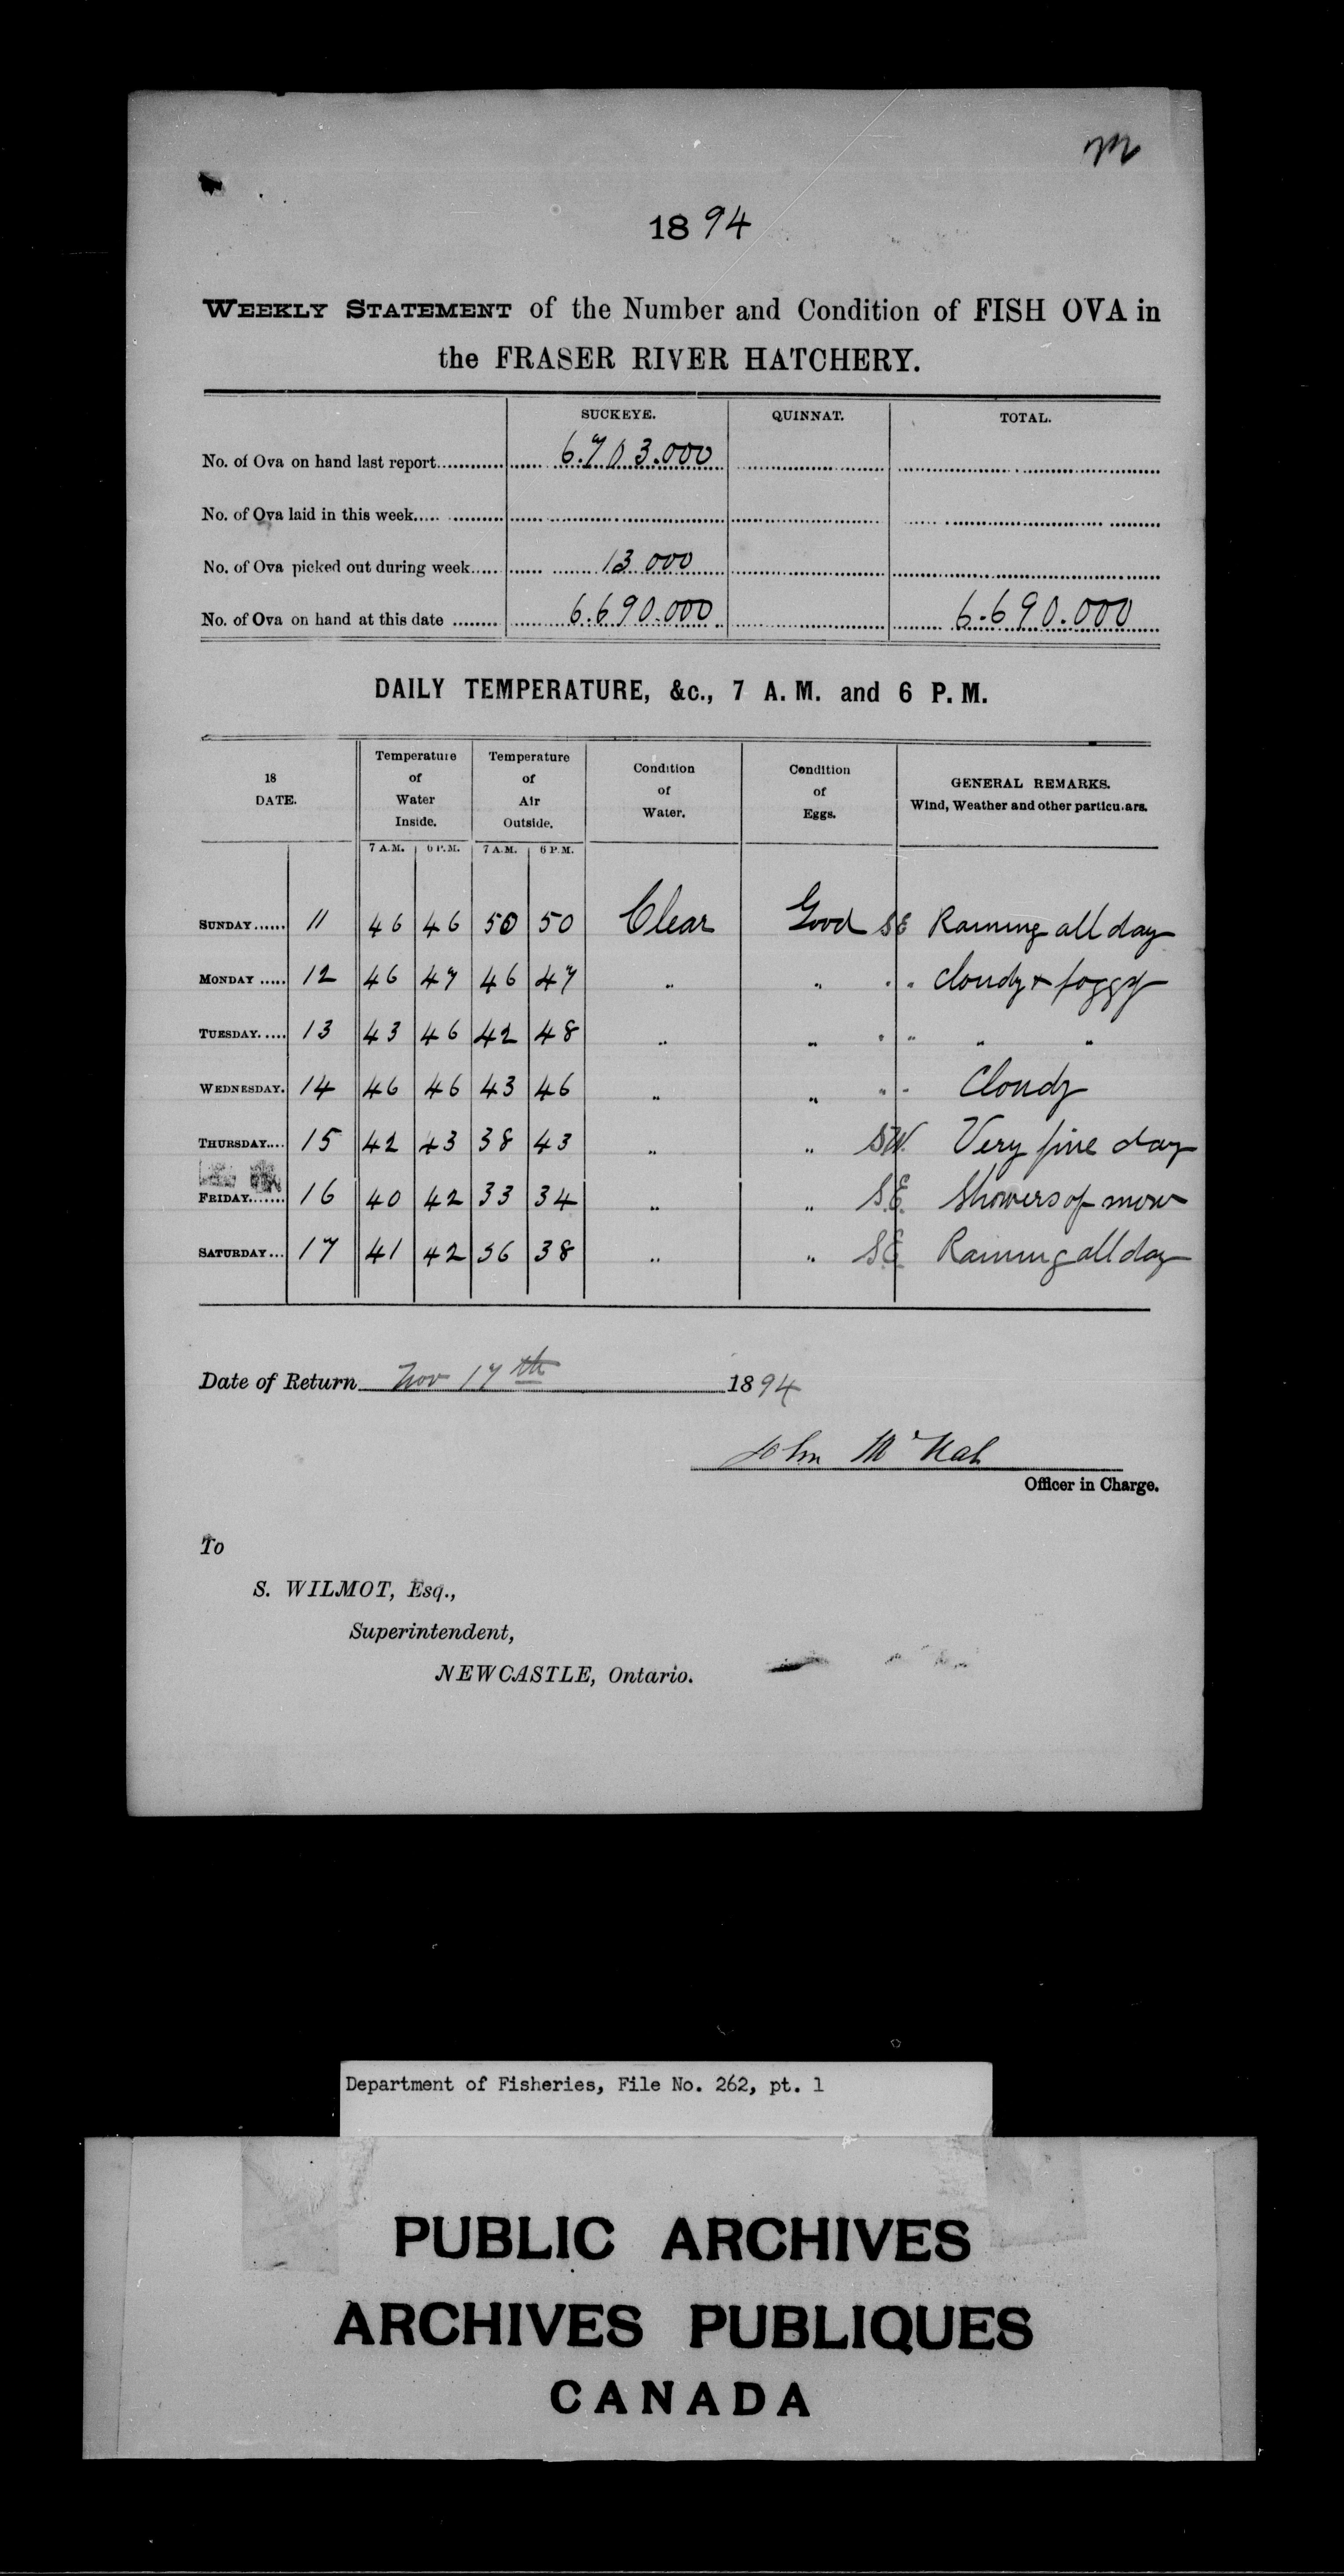 m
1894
WEEKLY STATEMENT of the Number and Condition of FISH OVA in
the FRASER RIVER HATCHERY.
SUCKEYE. QUINNAT. TOTAL.
No. of Ova on hand last report 6.703.000
No. of Ova laid in this week
No. of Ova picked out during week 13 000
No. of Ova on hand at this date 6.690.000 6.690.000
DAILY TEMPERATURE, &c., 7 A. M. and 6 P. M.
18 DATE. Temperature of Water Inside. Temperature of Air Outside. Condition of Water. Condition of Eggs. GENERAL REMARKS. Wind, Weather and other particulars.
7 A.M. 6 P.M. 7 A.M. 6 P.M.
SUNDAY 11 46 46 50 50 Clear Good SE Raining all day
MONDAY 12 46 47 46 47 " " " " Cloudy & foggy
TUESDAY 13 43 46 42 48 " " " " " "
WEDNESDAY. 14 46 46 43 46 " " " " Cloudy
THURSDAY 15 42 43 38 43 " " S.W. Very fine day
FRIDAY 16 40 42 33 34 " " S.E. Showers of snow
SATURDAY 17 41 42 36 38 " " S.E. Raining all day
Date of Return Nov 17th 1894
John McNab
Officer in Charge.
To
S. WILMOT, Esq.,
Superintendent,
NEWCASTLE, Ontario.
Department of Fisheries, File No. 262, pt. 1
PUBLIC ARCHIVES
ARCHIVES PUBLIQUES
CANADA